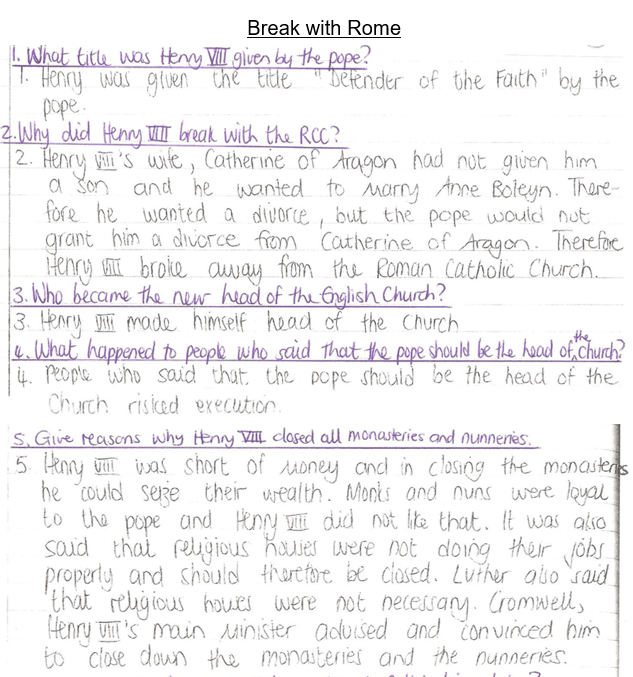 Break with Rome
1. What title was Henry VIII given by the pope?
1. Henry was given the title "Defender of the Faith" by the
pope.
2. Why did Henry VIII break with the RCC?
2. Henry VIII's wife, Catherine of Aragon had not given him
a son and he wanted to marry Anne Boleyn. There-
fore he wanted a divorce, but the pope would not
grant him a divorce from Catherine of Aragon. Therefore
Henry VIII broke away from the Roman Catholic Church.
3. Who became the new head of the English Church?
3. Henry VIII made himself head of the Church
4. What happened to people who said that the pope should be the head of the Church?
4. People who said that the pope should be the head of the
Church risked execution.
5. Give reasons why Henry VIII closed all monasteries and nunneries.
5. Henry VIII was short of money and in closing the monasteries
he could seize their wealth. Monks and nuns were loyal
to the pope and Henry VIII did not like that. It was also
said that religious houses were not doing their jobs
properly and should therefore be closed. Luther also said
that religious houses were not necessary. Cromwell,
Henry VIII's main minister advised and convinced him
to close down the monasteries and the nunneries.